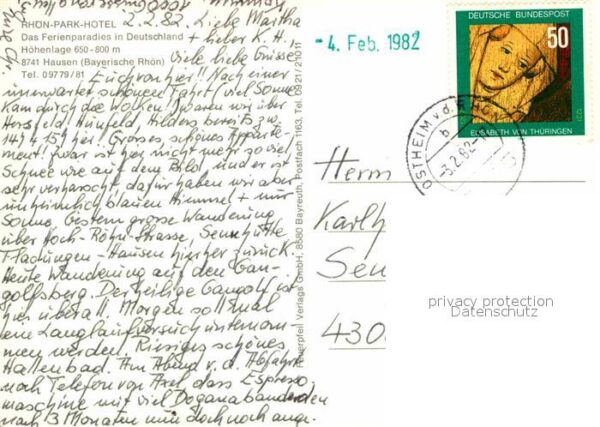 RHÖN-PARK-HOTEL
Das Ferienparadies in Deutschland
Höhenlage 650-800 m
8741 Hausen (Bayerische Rhön)
Tel. 09779/81
2.2.82. Liebe Martha
+ lieber K. H.,
viele liebe Grüsse
Euch von hier!! Nach einer
unerwartet schönen Fahrt (viel Sonne
kam durch die Wolken!) waren wir über
Hersfeld, Hünfeld, Hilders bereits zw.
14 + 15h hier! Grosses, schönes Apparte-
ment. Zwar ist hier nicht mehr so viel
Schnee wie auf dem Bild und er ist
sehr verharscht, dafür haben wir aber
unheimlich blauen Himmel + nur
Sonne. Gestern grosse Wanderung
über Hoch-Rhön-Strasse, Sennhütte
Fladungen - Hausen hierher zurück.
Heute Wanderung auf den Gan-
golfsberg. Der heilige Gangolf ist
hier überall. Morgen soll mal
ein Langlaufversuch unternom-
men werden. Riesiges schönes
Hallenbad. Am Abend v. d. Abfahrt
noch Telefon von Axel, dass Espresso
maschine mit viel Dogana
nach 3 Monaten nun doch noch ange-
Feuerpfeil Verlags GmbH, 8580 Bayreuth, Postfach 1163, Tel. 09 21/2 10 11
-4. Feb. 1982
DEUTSCHE BUNDESPOST
50
ELISABETH VON THÜRINGEN
1231
OSTHEIM v. d. RHÖN
b
-3.2.82-
Herrn
Karlh
Sen
430
privacy protection
Datenschutz